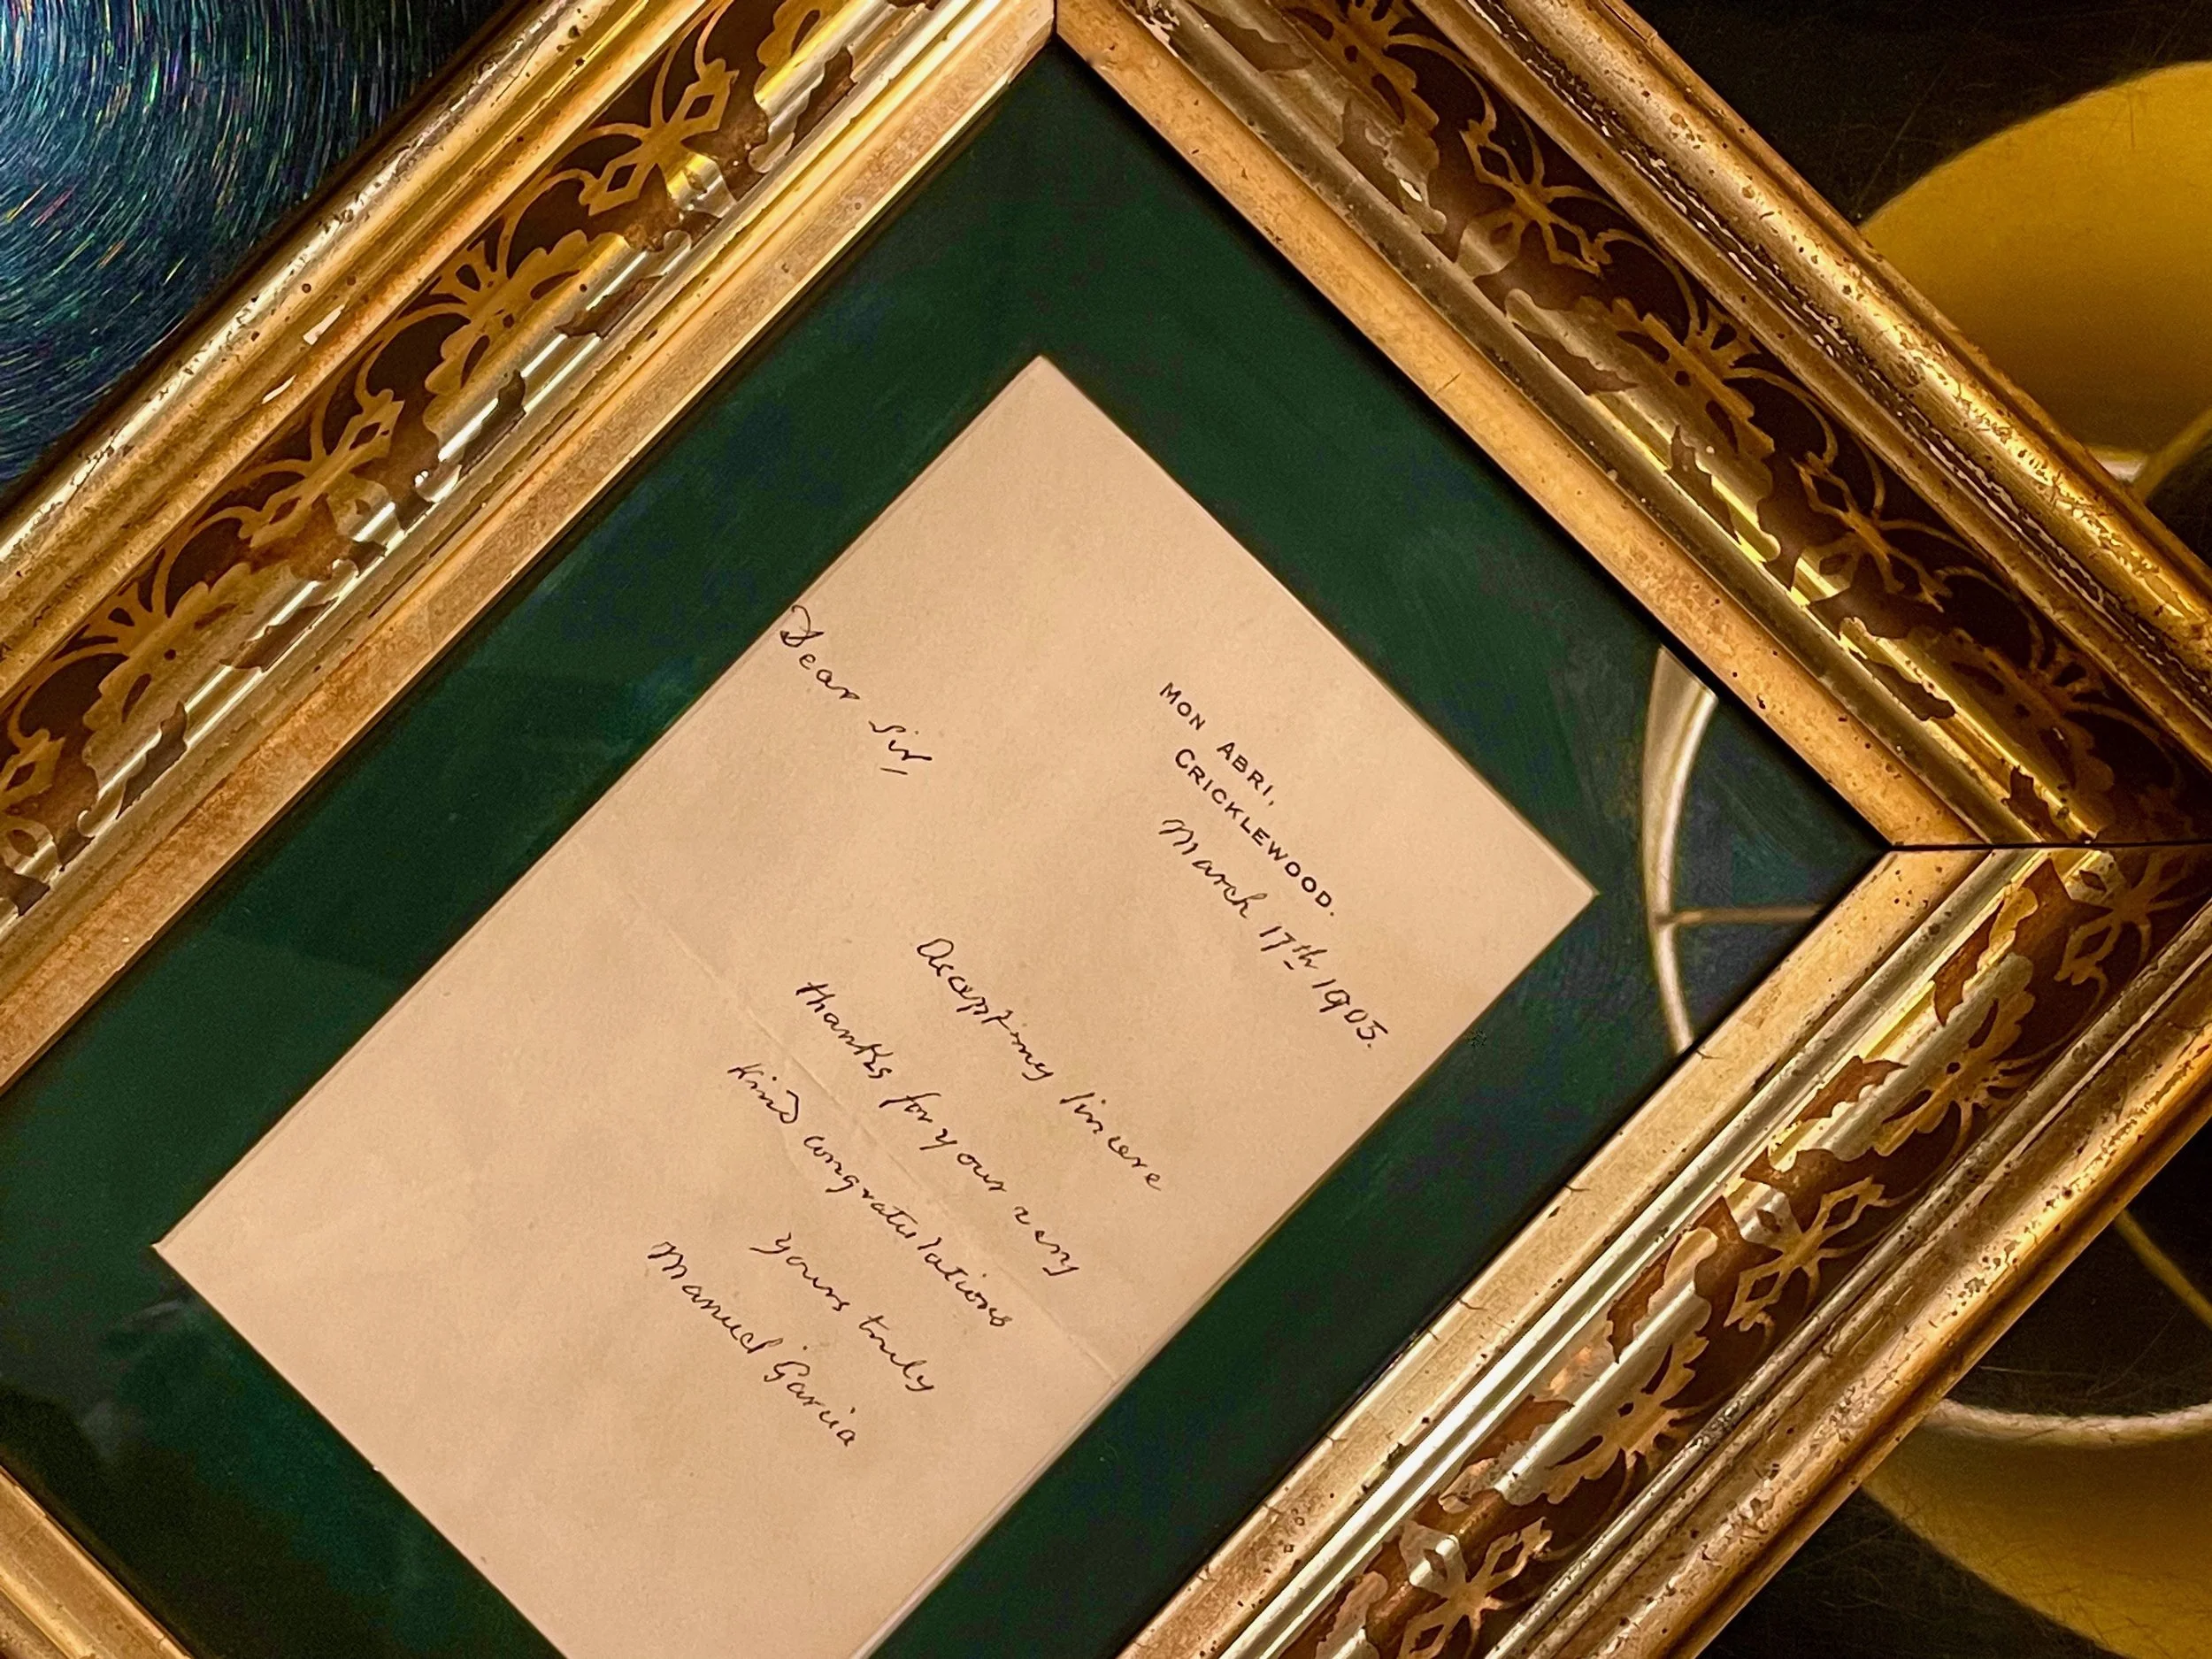 MON ABRI,
CRICKLEWOOD.
March 17th 1905.
Dear Sir
Accept my sincere
thanks for your very
kind congratulations
Yours truly
Manuel Garcia